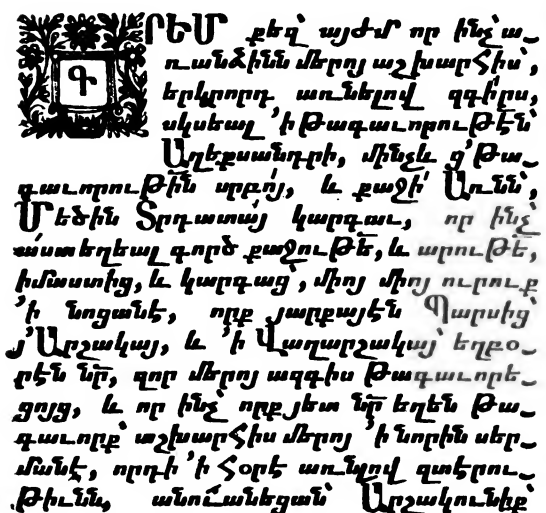 ԳՐԵՄ քեզ՝ այժմ որ ինչ՝ ա֊
ռանձինն մերոյ աշխարհիս՝,
երկրորդ առնելով զգիրս,
սկսեալ ՚ի Թագաւորութէն՝
Աղեքսանդրի, մինչև ց՚Թա֊
գաւորութին սրբոյ, և քաջի՝ Առնն՝,
Մեծին Տրդատայ կարգաւ, որ ինչ՝
աստ եղեալ գործ քաջութե՛, և արութե՛,
իմաստից, և կարգաց՝, միոյ միոյ ուրուք
՚ի նոցանէ, որք յարքայէն Պարսից՝
յ՚Արշակայ, և ՚ի Վաղարշակայ՝ եղբօ֊
րէն նր՛, զոր մերոյ ազգիս Թագաւորե֊
ցոյց, և որ ինչ՝ որք յետ նր՛ եղեն Թա֊
գաւորք՝ աշխարհիս մերոյ ՚ի նորին սեր֊
մանէ, որդի ՚ի հօրէ առնլով զտէրու֊
թիւնն, անուանեցան՝ Արշակունիք՝